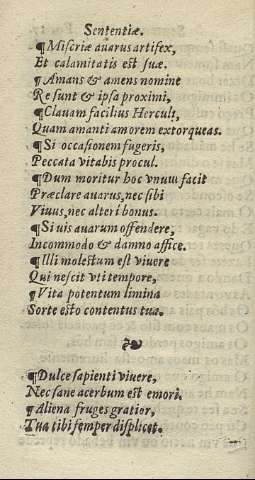 Sententiæ.
¶Miseriæ auarus artifex,
Et calamitatis est suæ.
¶Amans & amens nomine
Re sunt & ipsa proximi,
¶Clauam facilius Herculi,
Quam amanti amorem extorqueas.
¶Si occasionem fugeris,
Peccata vitabis procul.
¶Dum moritur hoc vnum facit
Præclare auarus, nec sibi
Viuus, nec alteri bonus.
¶Si uis auarum offendere,
Incommodo & damno affice.
¶Illi molestum est viuere
Qui nescit vti tempore,
¶Vita potentum limina
Sorte esto contentus tua.
¶Dulce sapienti viuere,
Nec sane acerbum est emori,
¶Aliena fruges gratior,
Tua tibi semper displicet.